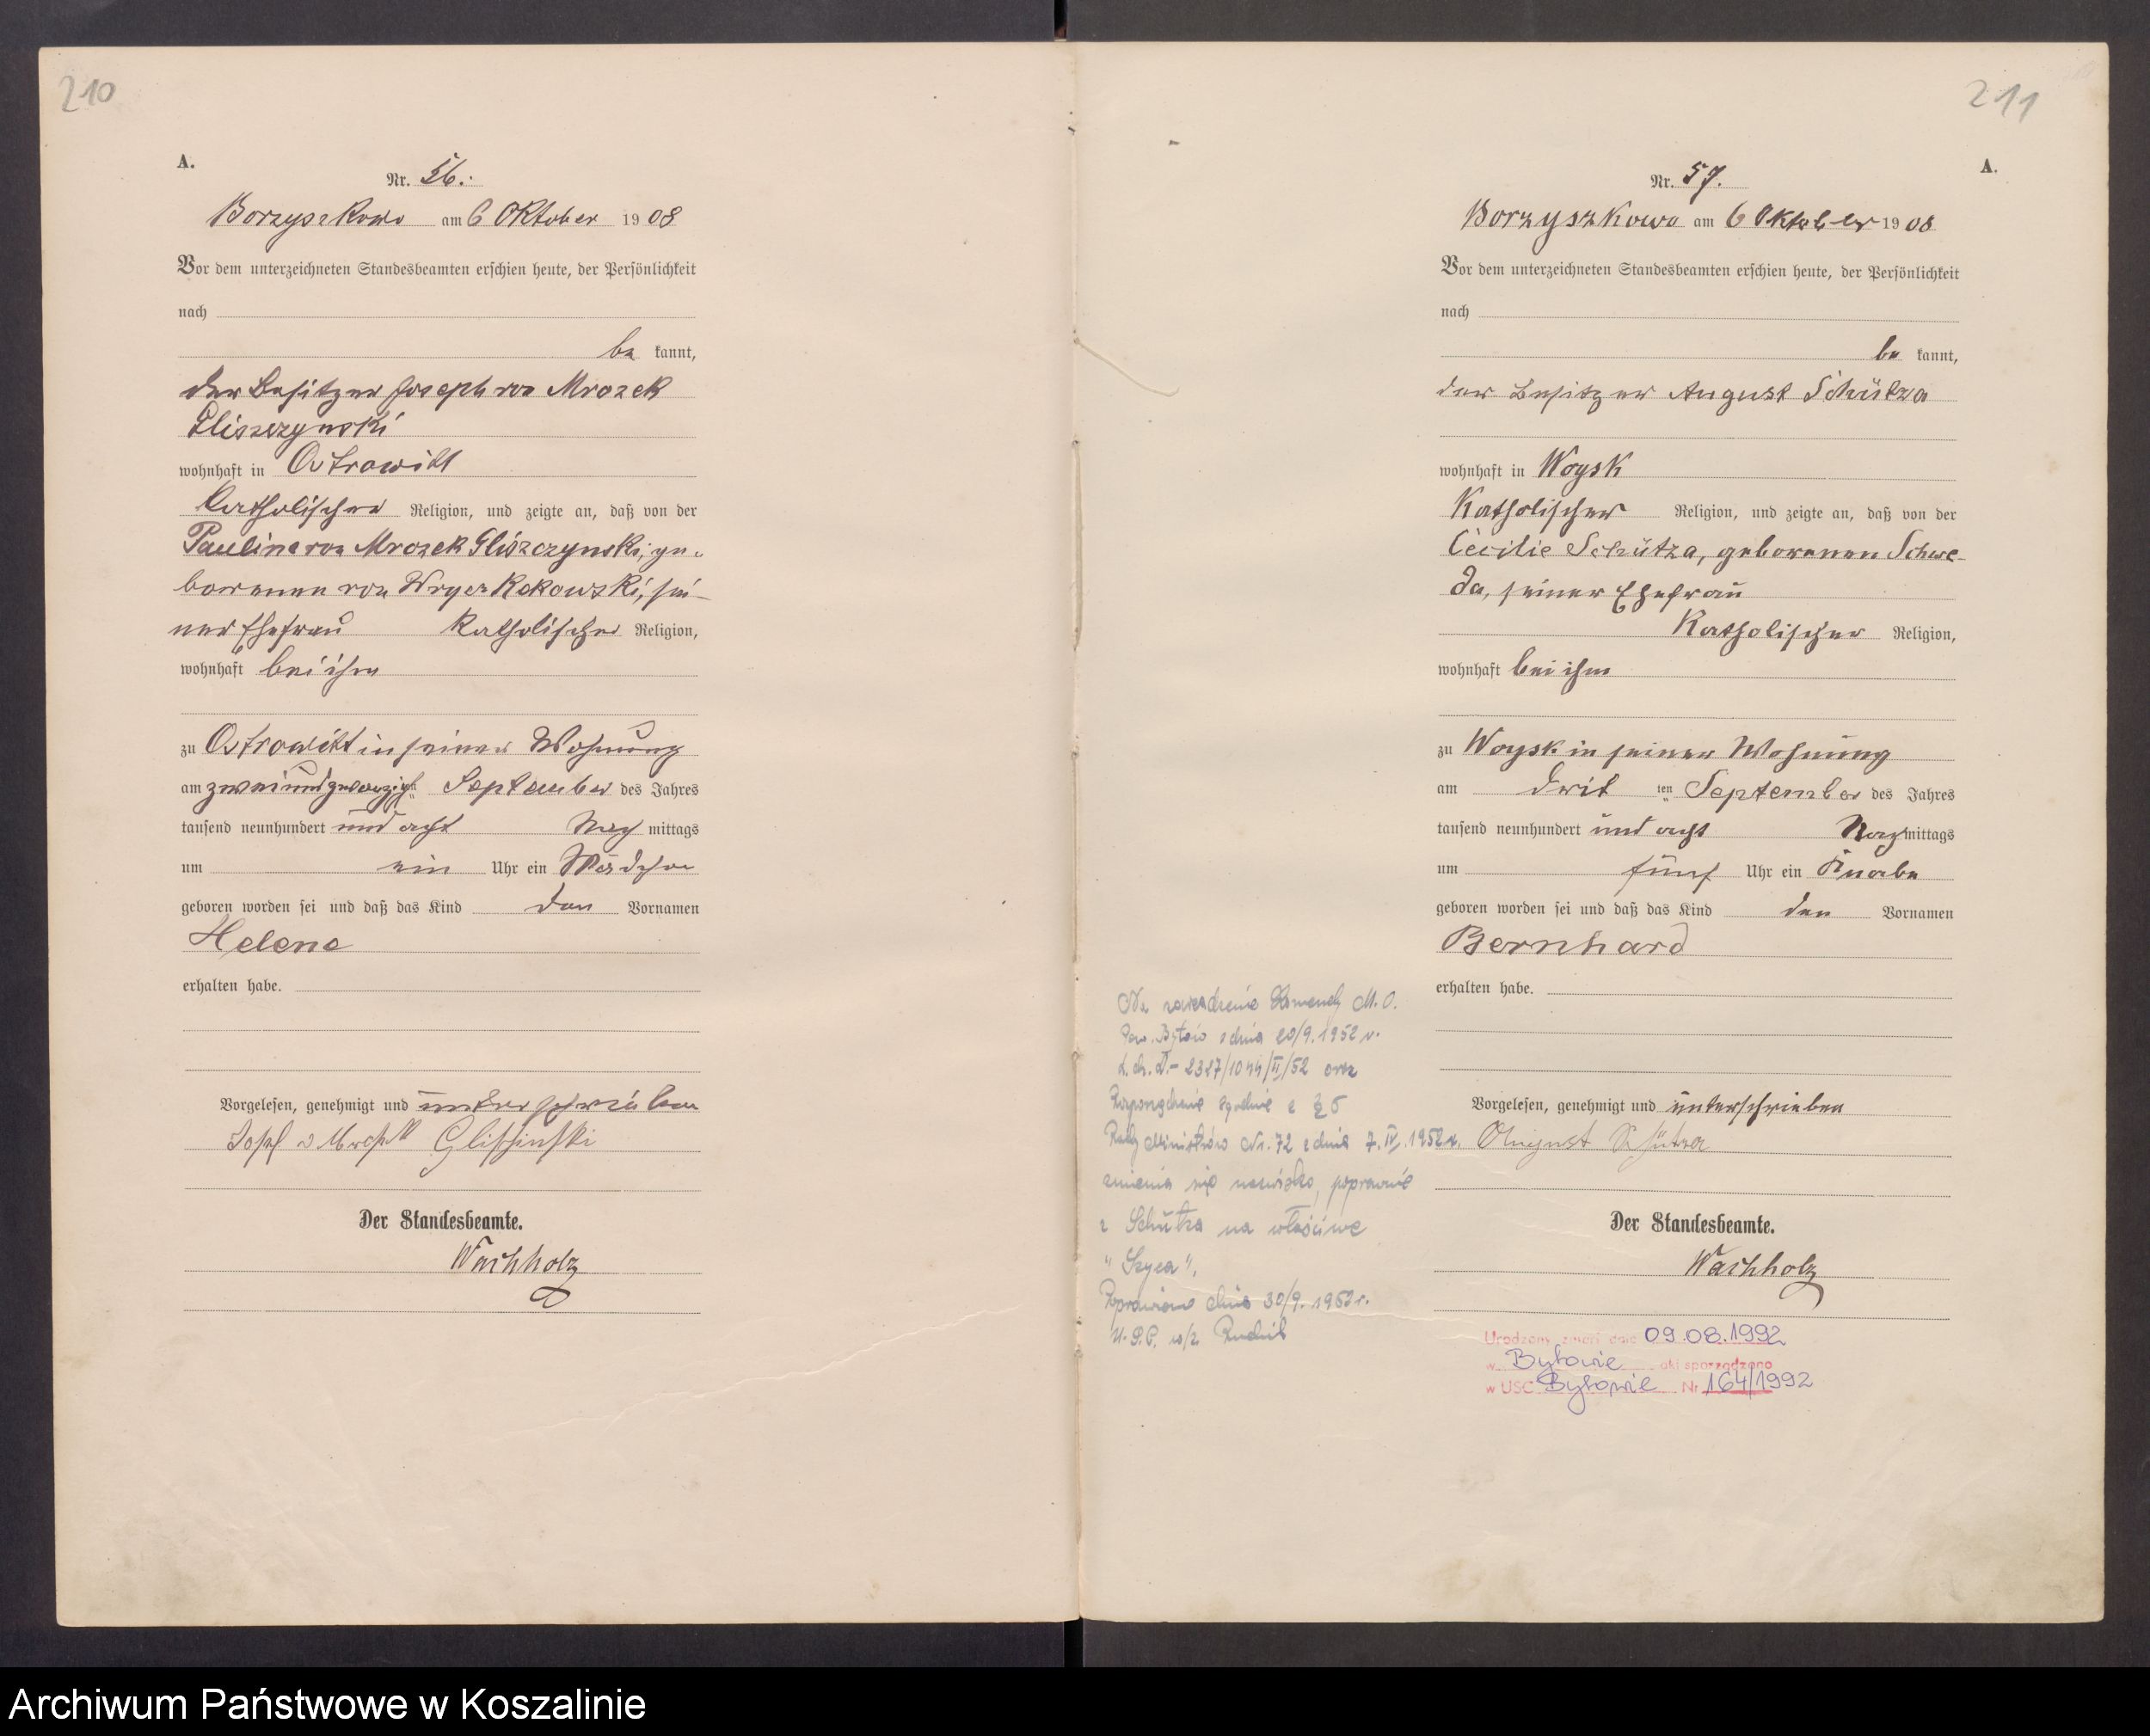 210
A.
Nr. 56.
Borzyszkowo am 6 Oktober 1908
Vor dem unterzeichneten Standesbeamten erschien heute, der Persönlichkeit
nach
be kannt,
der Besitzer Joseph von Mrozek
Gliszczynski
wohnhaft in Ostrowitt
katholischer Religion, und zeigte an, daß von der
Pauline von Mrozek Gliszczynski, ge-
borenen von Wrycz Rekowski, sei-
ner Ehefrau katholischer Religion,
wohnhaft bei ihm
zu Ostrowitt in seiner Wohnung
am zweiundzwanzigsten September des Jahres
tausend neunhundert und acht Nach mittags
um ein Uhr ein Mädchen
geboren worden sei und daß das Kind den Vornamen
Helene
erhalten habe.
Vorgelesen, genehmigt und unterschrieben
Josef v Mrosek Glischinski
Der Standesbeamte.
Wachholz
211
A.
Nr. 57.
Borzyszkowo am 6 Oktober 1908
Vor dem unterzeichneten Standesbeamten erschien heute, der Persönlichkeit
nach
be kannt,
der Besitzer August Schütza
wohnhaft in Woysk
Katholischer Religion, und zeigte an, daß von der
Cecilie Schütza, geborenen Schwe-
da, seiner Ehefrau
Katholischer Religion,
wohnhaft bei ihm
zu Woysk in seiner Wohnung
am dritten September des Jahres
tausend neunhundert und acht Nachmittags
um fünf Uhr ein Knabe
geboren worden sei und daß das Kind den Vornamen
Bernhard
erhalten habe.
Vorgelesen, genehmigt und unterschrieben
August Schütza
Der Standesbeamte.
Wachholz
Na Komendy M.O.
Pow. Bytów z dnia 20/9.1952 r.
L.dz. 2327/1044/II/52 oraz
zgodnie z § 5
Rady Ministrów Nr. 72 z dnia 7.IV.1952 r.
zmienia się nazwisko, poprawnie
z Schütza na właściwe
"Szyca".
Poprawiono dnia 30/9. 1952 r.
U.S.C. w/z
zmarł dnia 09.08.1992
w Bytowie akt sporządzono
w USC Bytowie Nr 164/1992
Archiwum Państwowe w Koszalinie